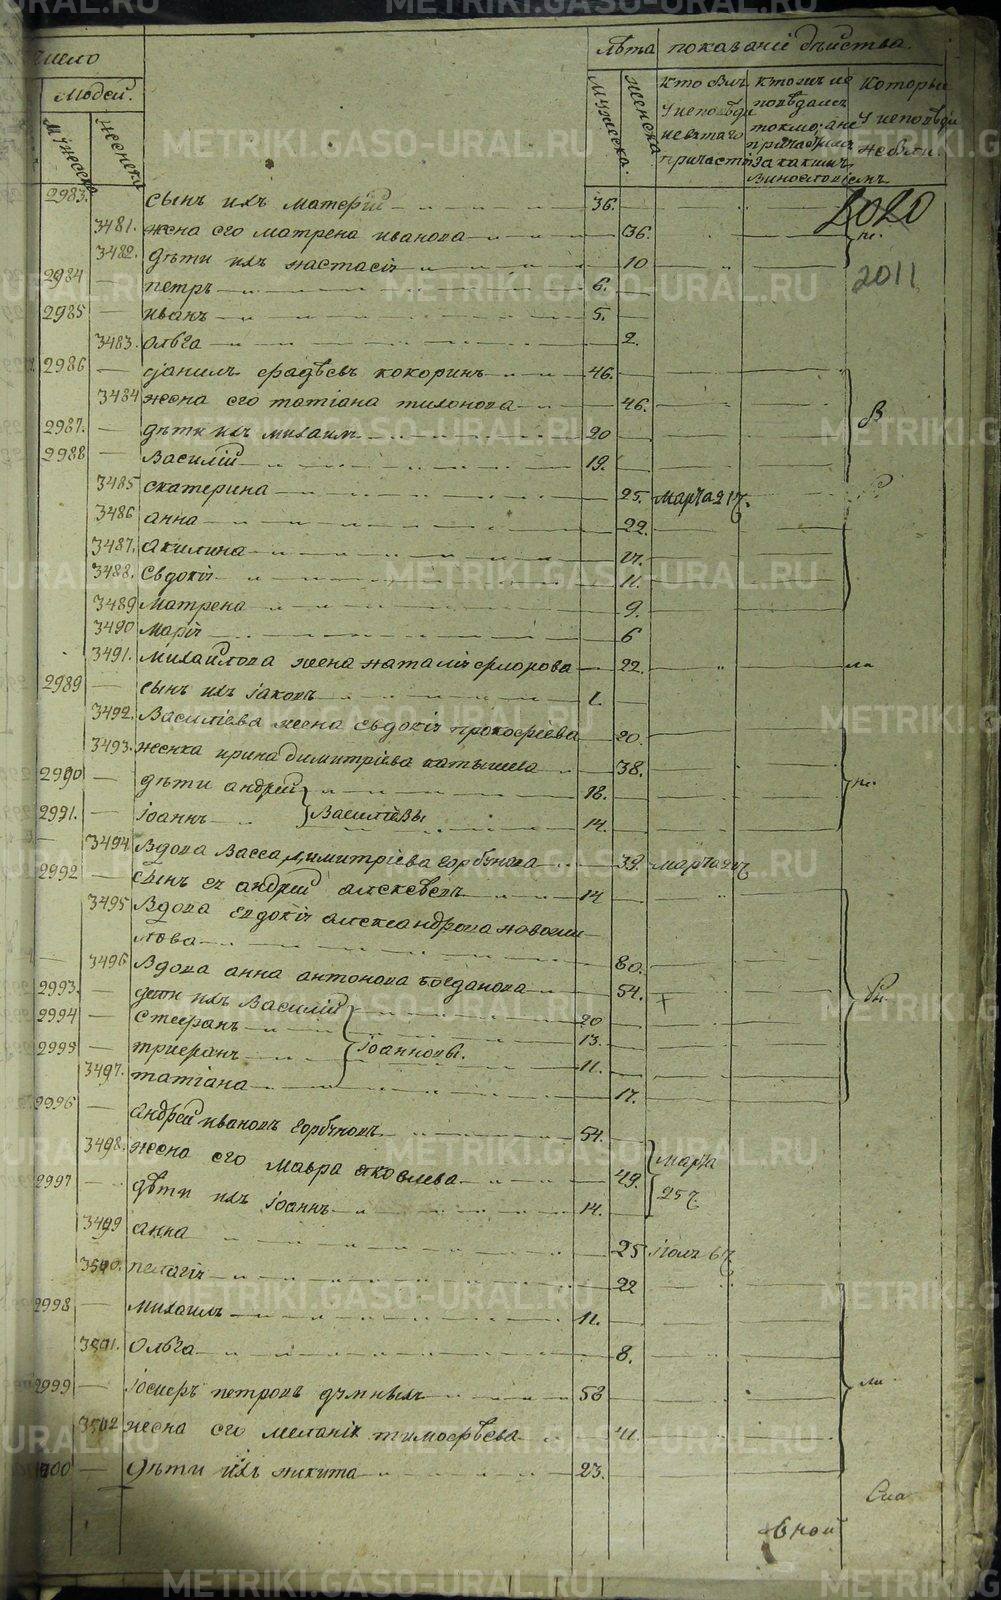 число
лѣта показаніѧ дѣйства.
людей.
мужеска
женска
мужеска.
женска.
Кто былъ
у исповѣди
и св̃таго
причастіѧ
кто исповѣдался
токмо, а не
причастился
за какимъ
винословіемъ
Которые
у исповѣди
не были.
2983. сынъ ихъ матерій 36.
2020
3481. жена его матрена иванова 36.
3482. дѣти ихъ настасіѧ 10
2984 петръ 6.
2011
2985 иванъ 5.
3483. ольга 2.
2986 данилъ фадѣевъ кокоринъ 46.
3484 жена его татіана тихонова 46.
2987. дѣти ихъ михаилъ 20
2988 василій 19.
3485 екатерина 25. марта 21 ч.
3486 анна 22.
3487. акилина 17.
3488. Евдокіѧ 11.
3489 матрена 9.
3490 маріѧ 6
3491. михайлова жена наталіѧ флорова 22.
2989 сынъ ихъ іаковъ 1.
3492. василіева жена евдокіѧ прокофіева 20.
3493. женка ирина димитріева катышева 38.
2990 дѣти андрей 18.
2991. іоаннъ василіевы 14.
3494 вдова васса димитріева горбунова 39. марта
2992 сынъ еѧ андрей алексѣевъ 14
3495 вдова евдокіѧ александрова новоси
лова 80.
3496 вдова анна антонова богданова 54.
2993. дѣти ихъ василій 20
2994 стефанъ 13.
іоанновы.
2995 трифанъ 11.
3497. татіана 17.
2996 андрей ивановъ горбуновъ 54.
3498. жена его мавра ѧковлева 49. марта
25 ч.
2997 дѣти ихъ іоаннъ 14.
3499 анна 25
3500. пелагіѧ 22
2998 михаилъ 11.
3501. ольга 8.
2999 іосифъ петровъ думныхъ 53
3502 жена его меланіѧ тимофѣева 41.
3000 дѣти ихъ никита 23.
METRIKI.GASO-URAL.RU